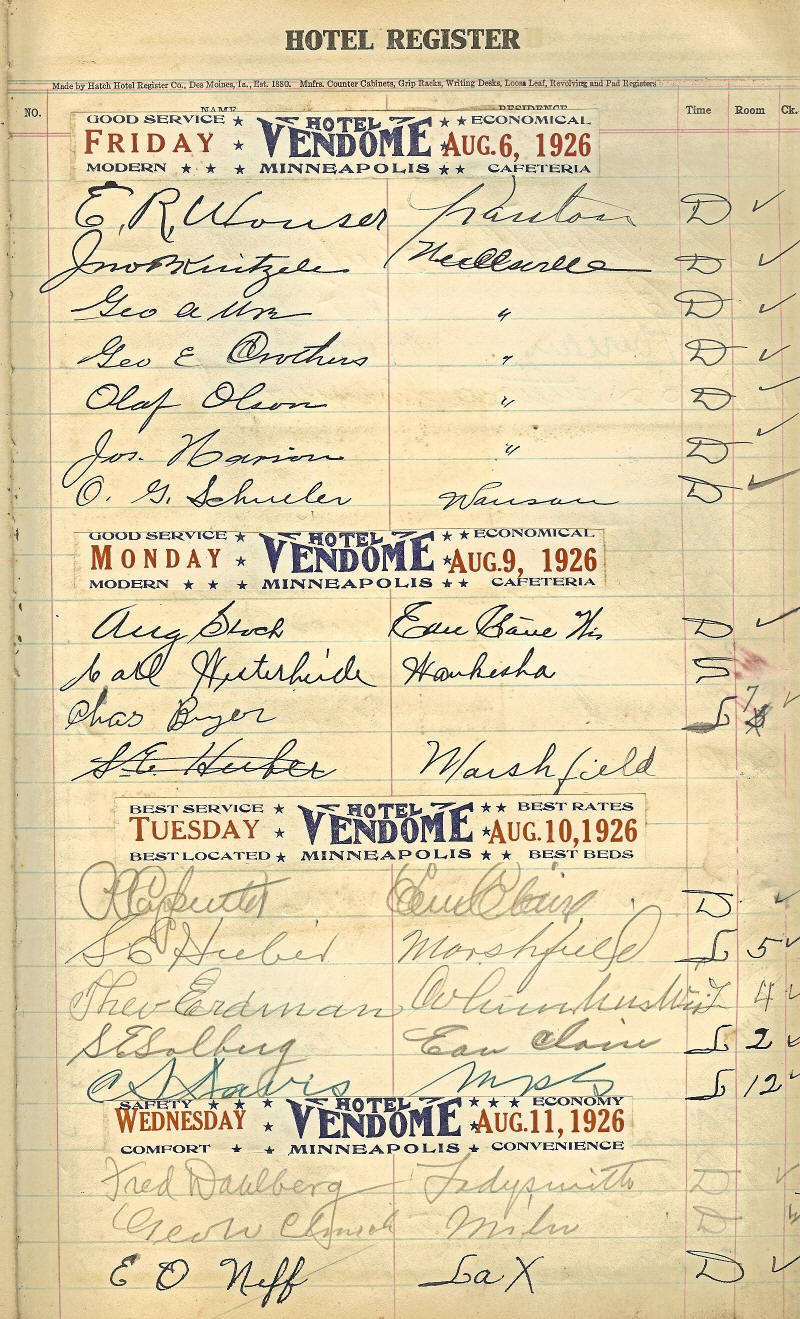 HOTEL REGISTER
Made by Hatch Hotel Register Co., Des Moines, Ia., Est. 1880. Mnfrs. Counter Cabinets, Grip Racks, Writing Desks, Loose Leaf, Revolving and Pad Registers
NO. NAME RESIDENCE Time Room Ck.
GOOD SERVICE ★ HOTEL ★ ★ ECONOMICAL
FRIDAY ★ VENDOME ★ AUG. 6, 1926
MODERN ★ ★ ★ MINNEAPOLIS ★ ★ CAFETERIA
E. R. D ✓
Jno Neillsville D ✓
Geo a Ure " D ✓
Geo E Crothers " D ✓
Olaf Olson " D ✓
Jos. " D ✓
O. G. Schueler Wausau D ✓
GOOD SERVICE ★ HOTEL ★ ★ ECONOMICAL
MONDAY ★ VENDOME ★ AUG. 9, 1926
MODERN ★ ★ ★ MINNEAPOLIS ★ ★ CAFETERIA
Aug Stock Eau Claire Wis D ✓
Carl Waukesha S
Chas Buyer L 7 ✓
S.E. Heiber Marshfield
BEST SERVICE ★ HOTEL ★ ★ BEST RATES
TUESDAY ★ VENDOME ★ AUG. 10, 1926
BEST LOCATED ★ MINNEAPOLIS ★ ★ BEST BEDS
Eau Claire D ✓
S E Hieber Marshfield L 5 ✓
Theo Erdman Columbus Wis L 4 ✓
S E Solberg Eau Claire L 2 ✓
C S Davis Mpls L 12 ✓
SAFETY ★ ★ HOTEL ★ ★ ★ ECONOMY
WEDNESDAY ★ VENDOME ★ AUG. 11, 1926
COMFORT ★ ★ MINNEAPOLIS ★ ★ CONVENIENCE
Fred Dahlberg Ladysmith D ✓
Geo W Milw D ✓
E O Neff La X D ✓